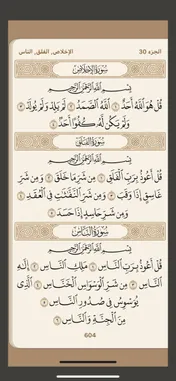 الجزء 30 الإخلاص, الفلق, الناس
سُورَةُ الإِخْلَاصِ
بِسْمِ اللَّهِ الرَّحْمَٰنِ الرَّحِيمِ
قُلْ هُوَ اللَّهُ أَحَدٌ ١ اللَّهُ الصَّمَدُ ٢ لَمْ يَلِدْ وَلَمْ يُولَدْ ٣
وَلَمْ يَكُن لَّهُ كُفُوًا أَحَدٌ ٤
سُورَةُ الفَلَقِ
بِسْمِ اللَّهِ الرَّحْمَٰنِ الرَّحِيمِ
قُلْ أَعُوذُ بِرَبِّ الْفَلَقِ ١ مِن شَرِّ مَا خَلَقَ ٢ وَمِن شَرِّ
غَاسِقٍ إِذَا وَقَبَ ٣ وَمِن شَرِّ النَّفَّاثَاتِ فِي الْعُقَدِ ٤
وَمِن شَرِّ حَاسِدٍ إِذَا حَسَدَ ٥
سُورَةُ النَّاسِ
بِسْمِ اللَّهِ الرَّحْمَٰنِ الرَّحِيمِ
قُلْ أَعُوذُ بِرَبِّ النَّاسِ ١ مَلِكِ النَّاسِ ٢ إِلَٰهِ
النَّاسِ ٣ مِن شَرِّ الْوَسْوَاسِ الْخَنَّاسِ ٤ الَّذِي
يُوَسْوِسُ فِي صُدُورِ النَّاسِ ٥
مِنَ الْجِنَّةِ وَالنَّاسِ ٦
604